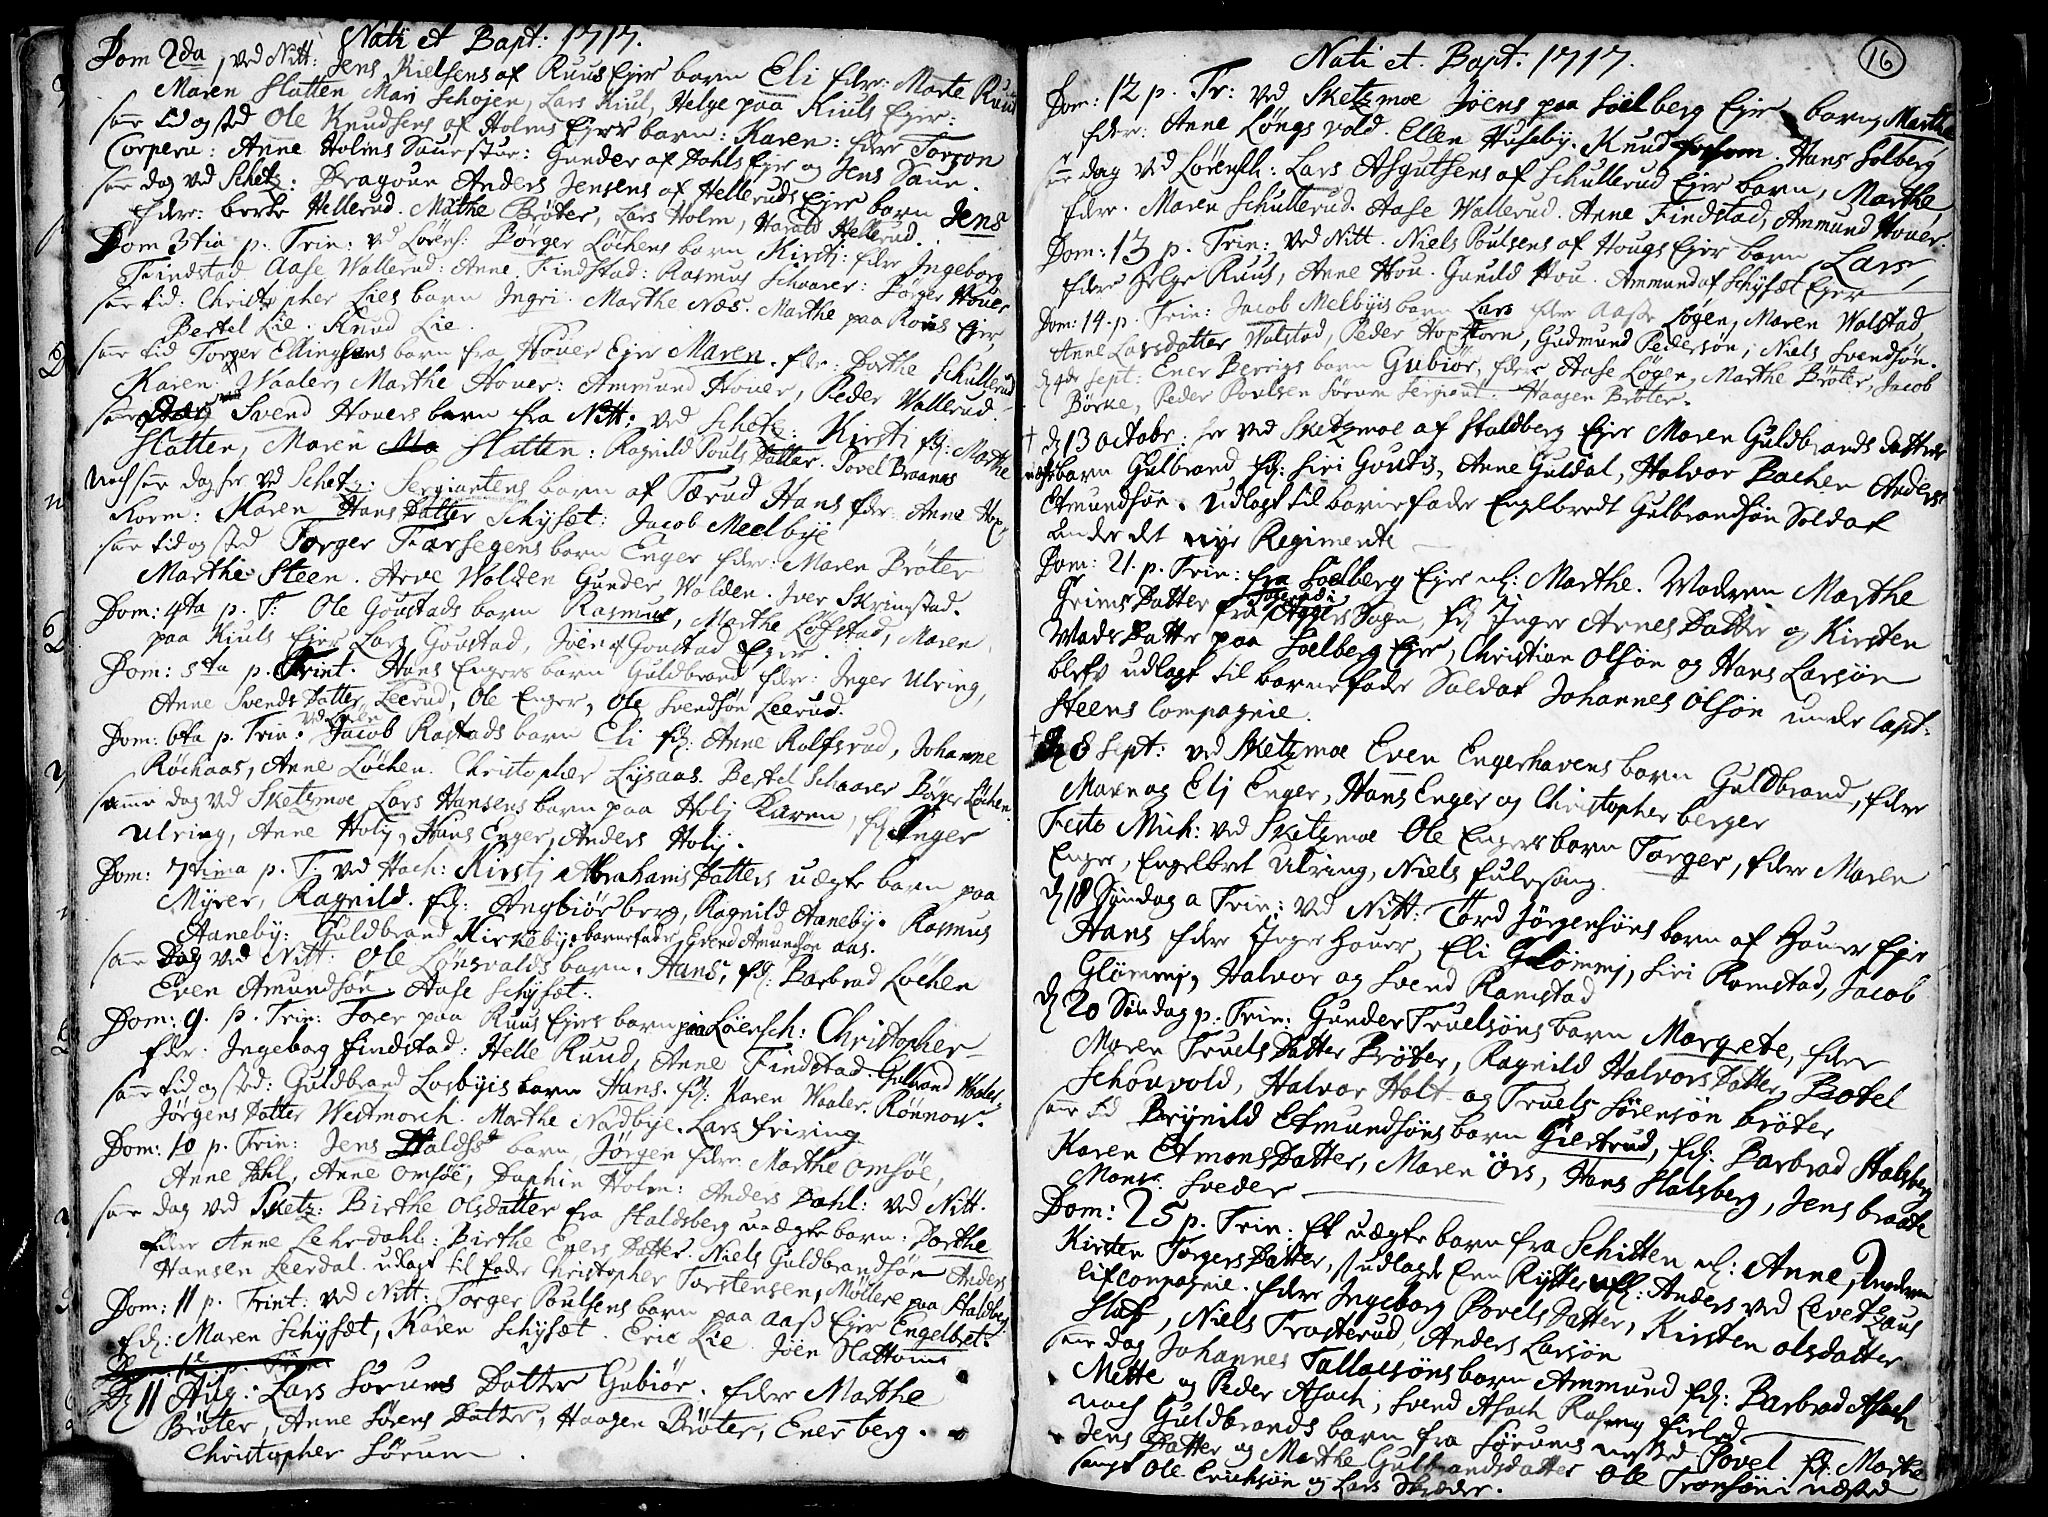 Nati et Bapt: 1717.
Dom 2da, ved Nitt: Jens Nielsens af Ruus Ejer barn Eli fdr: Marte Ruud
Maren Slatten Mari Schojen, Lars Kiul, Helge paa Kiuls Ejer:
samme tid og sted Ole Knudsens af Holms Ejer barn: Karen: fdre Torgon
Corperu: Anne Holms Daurstur: Gunder af Dahls Ejer og Jens Daur.
samme dag ved Schetz: Dragoun Anders Jensens af Helleruds Ejer barn Jens
fdre: berte Hellerud. Mathe Bröter, Lars Holm, Harald Hellerud.
Dom 3tia p. Trin: vd Lörens: Börger Löchens barn Kirsti: fdr Ingeborg
Findstad Aase Wallerud: Anne Findstad: Rasmus Schaarer: Börger Houer
samme tid: Christopher Lies barn Ingri. Marthe Næs. Marthe paa Roms Ejer
Bertel Lie. Knud Lie.
samme tid Torger Ellingsens barn fra Houer Ejer Maren. fdr: Dorthe Schullerud
Karen Waaler, Marthe Houer: Ammund Houer, Peder Wallerud.
samme dag Svend Houers barn fra Nitt: ved Schetz: Kirsti fd: Marthe
Slatten, Maren Slatten: Ragnild Pouls Datter. Povel Braanas
Noch samme dag her ved Schetz: Sergiantens barn af Tærud Hans fdr: Anne Hox
Korm: Karen Hans Datter Schysæt: Jacob Meelbye
samme tid og sted Torger Farsegens barn Enger fdre: Maren Bröter
Marthe Steen. Arve Wolden Gunder Wolden. Iver Skrimstad.
Dom: 4ta p. T: Ole Goustads barn Rasmus, Marthe Löfstad, Maren
paa Kiuls Ejer Lars Goustad, Joen af Goustad Ejer.
Dom: 5ta p. Trint. Hans Engers barn Guldbrand fdre: Inger Ulring,
Anne Svends Datter Leerud, Ole Enger, Ole Svendsön Leerud.
ved Lören
Dom: 6ta p. Trin. Jacob Rastads barn Eli fd: Anne Rolfsrud, Johanne
Röchaas, Anne Löchen. Christopher Lysaas. Bertel Schaarer Börger Löchen.
samme dag ved Sketzmoe Lars Hansens barn paa Holj Karen, fd Inger
Ulring, Anne Holj, Hans Enger, Anders Holj.
Dom: 7tima p. T. ved Hach: Kirsti Abrahams Datters uægte barn paa
Myrer, Ragnild. fd: Angbiör berg, Ragnild Aaneby. Rasmus
Aaneby: Guldbrand Kirkeby. barnefader Evend Amundsön aas.
samme Dag ved Nitt: Ole Lönsvalds barn. Hans, fd: Barbrad Löchen
Even Amundsön. Aase Schysæt.
Dom: 9. p. Trin: Torer paa Ruus Ejers barn paa Löersch: Christopher
fdr: Ingebog Findstad: Helle Ruud, Anne Findstad. Gulbrand Waaler.
samme tid og sted: Guldbrand Losbyis barn Hans. fd: Karen Waaler. Rönnov.
Jörgens Datter Westmorch. Marthe Nadbye. Lars friring
Dom: 10 p. Trin: Jens Haldss barn Jörgen fdre Marthe Omsöe,
Anne Dahl, Anne Omsöe, Dophin Holm: Anders Dahl: ved Nitt.
samme dag ved Sketz: Birthe Olsdatter fra Staldsberg uægte barn: Dorthe
fdre Anne Lehrdahl: Birthe Eners Datter. Niels Guldbrandsön Anders
Hansen Leerdal. udlagt til fader Christopher Torstensen, Möllere paa Staldberg
Dom: 11 p. Trint: ved Nitt: Torger Poulsens barn paa Aass Ejer Engelbret.
fd: Maren Schysæt, Karen Schysæt. Eric Lie. Joen Slattom.
Dom 12 p. Trin
D 11 Aug: Lars Sörums Datter Gubiör. fdre Marthe
Bröter, Anne Sörens Datter, Haagen Bröter, Ener berg.
Christopher Sörum.
16
Nati et Bapt: 1717.
Dom: 12 p. Tr: ved Sketzmoe Joens paa Soelberg Ejer barn Marthe
fdre: Anne Löngsvold. Ellen Huseby. Knud forsom. Hans Solberg
samme dag ved Lörensk: Lars Asgutsens af Schullerud Ejer barn, Marthe,
fdre. Maren Schullerud. Aase Wallerud. Anne Findstad, Ammund Houer.
Dom: 13 p. Trin: ved Nitt. Niels Poulsens af Hougs Ejer barn Lars,
fdre Helge Ruus, Anne Hou. Guuld Hou. Ammund af Schysæt Ejer
Dom: 14. p. Trin: Jacob Melbyis barn Lars fdre Aasse Lögen, Maren Wolstad
Anne Larsdatter Wolstad, Peder Hoxkorn, Gudmund Pedersön, Niels Svendsön.
d 4de Sept: Ener Bergs barn Gubiör, fdre Aase Löger, Marthe Bröter, Jacob
Börke, Peder Poulsen Sörum Sergiant. Haagen Bröter.
† d 13 Octobr: her ved Sketzmoe af Staldberg Ejer Maren Guldbrands datters
uægte barn Gulbrand fd: Siri Goutis, Anne Guldal, Halvor Bachen Anders
Amundsön. Udlagt til barnefader Engelbredt Gulbrandsön Soldat
under det nye Regimente
Dom: 21. p. Trin: fra Soelberg Ejer nl: Marthe. Modren Marthe
Grims Datter fra Agger Sogn, fd Inger Arnes Datter og Kirsten
Mads Datter paa Soelberg Ejer, Christian Olsön og Hans Larsön
blefv udlagt til barnefader Soldat Johannes Olsön under Capt:
Steens Compagnie.
† D 8 Sept: ved Sketzmoe Even Engerhavens barn Guldbrand, fdre
Maren og Elj Enger, Hans Enger og Christopher berger
Festo Mich: ved Sketzmoe Ole Engers barn Torger, fdre Maren
Enger, Engelbret Ulring, Niels fulesang.
d 18 Söndag a Trin: ved Nitt: Tord Jörgensöns barn af Houer Ejer
Hans fdre Inger Houer, Eli Glömmj, Siri Ramstad, Jacob
Glömmj, Halvor og Svend Ramstad
d 20 Söndag p. Trin: Gunder Truelsöns barn Margrete, fdre
Maren Truels Datter Bröter, Ragnild Halvors Datter, Botel
Schouvold, Halvor Holt og Truels Sörensön bröter
samme tid Brynild Amundsöns barn Giertrud, fd: Barbrad Stalsberg
Karen Amons Datter, Maren Örs, Hans Stalsberg, Jens braate
Mons: Sveder
Dom: 25 p. Trin: Et uægte barn fra Schitten nl: Anne, Modren
Kirsten Torgers Datter, udlagde En Rytter nl: Anders ved Levetzaus
Lifcompagnie. fdre Ingeborg Povels Datter, Kirsten Olsdatter
Stuf, Niels Trosterud, Anders Larsön
samme dag Johannes Tallaesöns barn Ammund fd: Barbrad Asach
Mette og Peder Asach, Svend Asach Rasmus fierlod.
noch Guldbrands barn fra Sörums nested Povel fd: Marthe
Jens Datter og Marthe Gulbrandsdatter Ole Tronsön i næsted
sampt Ole Erichsön og Lars Skræder.